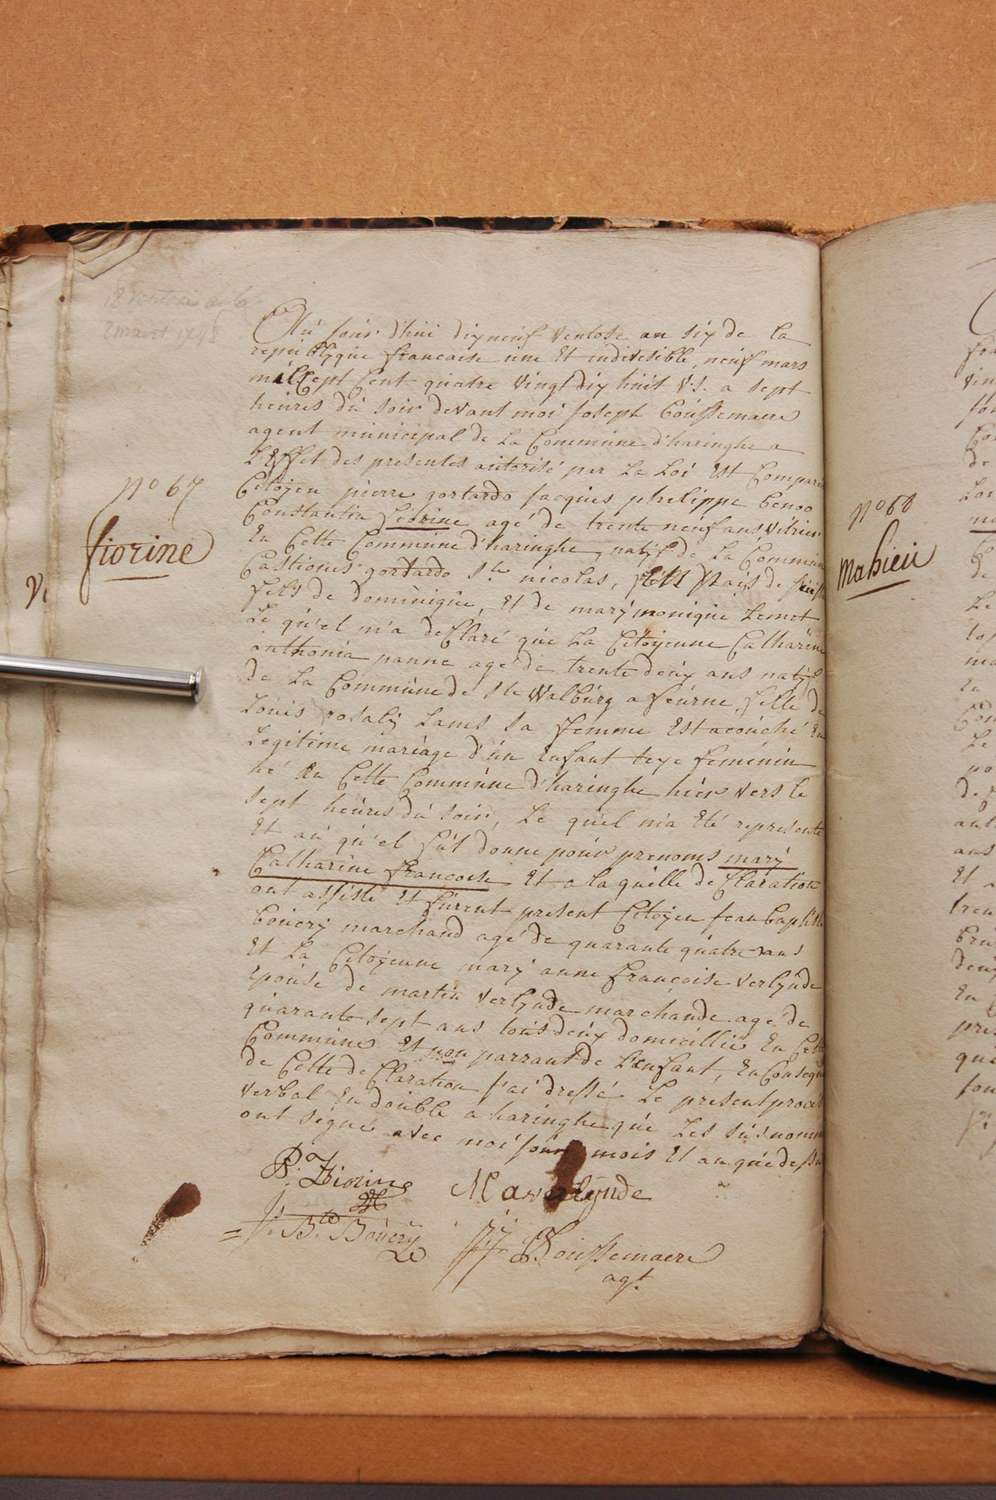 N° 67
fiorine
Au jour d'hui dixneuf ventose an six de la
republique francoise une Et indivisible, neuf mars
mil Sept Cent quatre vingt dix huit v.s. a sept
heures du soir devant moi joseph Coussemaere
agent municipal de La Commune d'haringhe a
L'Effet des presentes autorisé par La Loi Est Compare
Citoÿen pierre gortardo jacques phelippe benoo
Constantin fiorine agé de trente neuf ans vitrier
En Cette Commune d'haringhe, natif de La Commune
Castiones gortardo Ste nicolas, païs de
fils de dominique, Et de marÿ monique Lemot
Le qu'el m'a deClaré que La Citoÿenne Catharine
anthonia panne agé de trente deux ans natif
de La Commune de Ste Walburg a feurne, fille de
Louis rosalÿ Lams Sa femme Est acouché En
Legitime mariage d'un Enfant sexe feminin
né En Cette Commune d'haringhe hier vers le
sept heures du soir, Le qu'el m'a Eté representé
Et au qu'el fut donne pour prenoms marÿ
Catharine francoise Et a la quelle deClaration
ont assisté Et furent present Citoÿen jean baptiste
bouerÿ marchand agé de quarante quatre ans
Et La Citoÿenne marÿ anne francoise verlÿnde
Epouse de martin verlÿnde marchande agé de
quarante sept ans tous deux domiciliés En Cette
Commune Et non parrant de L'enfant, En Conseq
de Cette deClaration j'ai dressé Le present proces
verbal En double a haringhe que Les susnomm
ont signé avec moi jour mois Et an que dessu
P: Fiorine
M a verlÿnde
J: Bte Bouerÿ
J: Coussemaere
agt.
N° 68
Mahieu